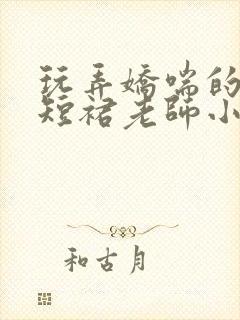 玩弄嬌喘的
短裙老師小
和古月